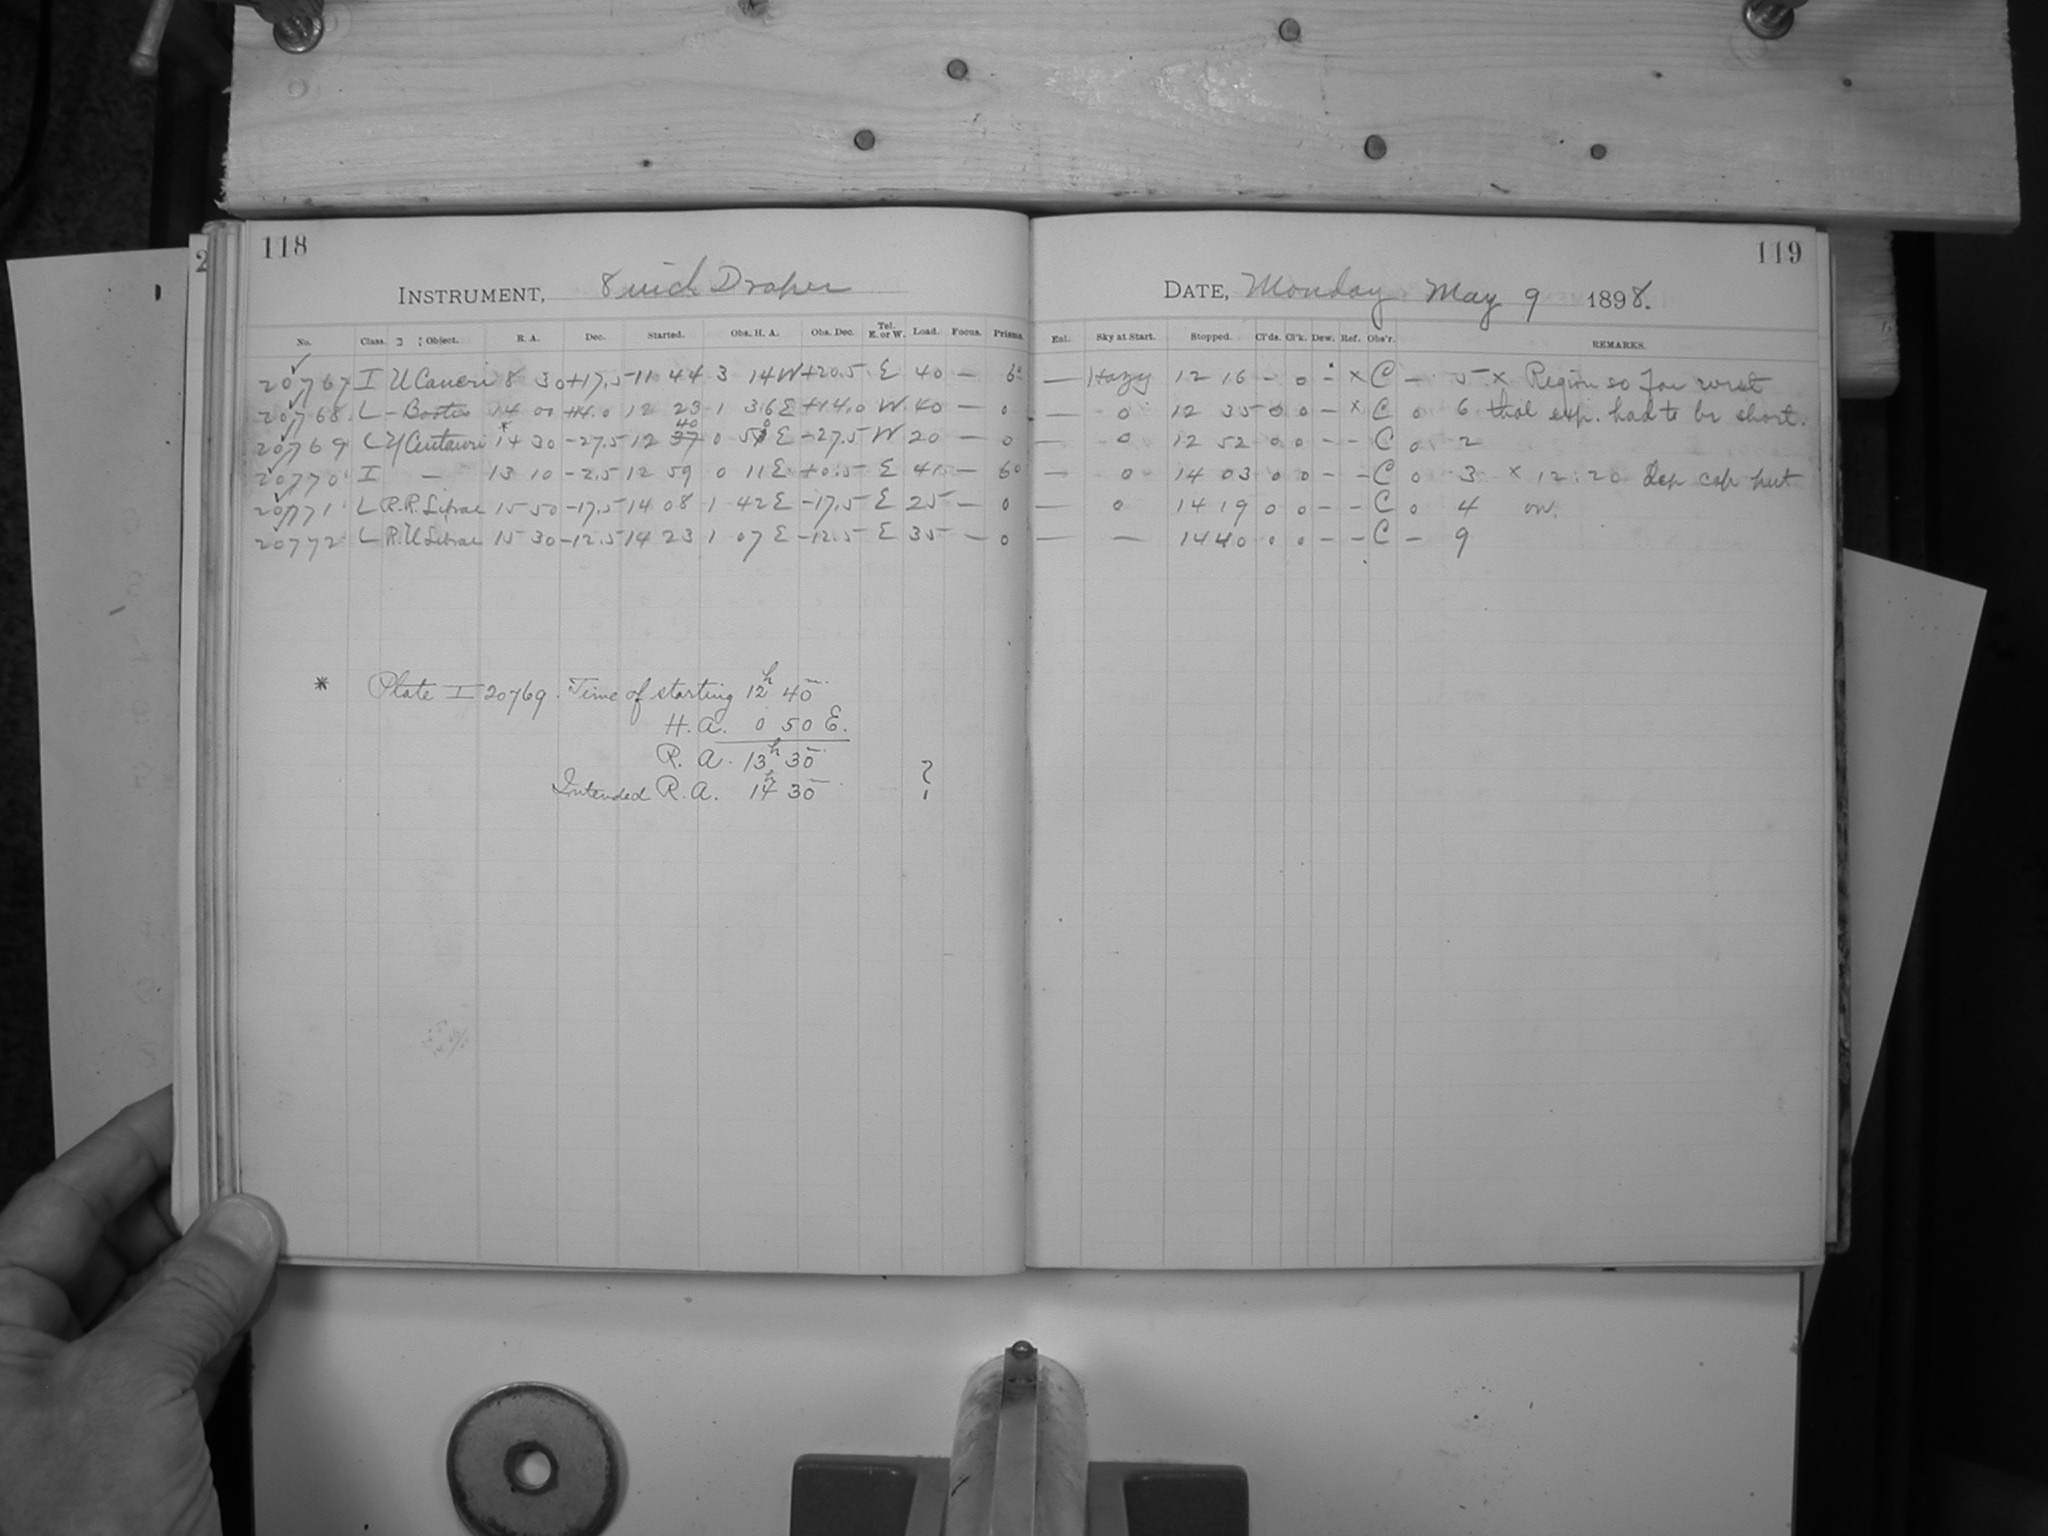 118
INSTRUMENT, 8 inch Draper
No. Class. Object. R. A. Dec. Started. Obs. H. A. Obs. Dec. Tel. E. or W. Load. Focus. Prisms.
20767 I U Cancri 8 30 +17.5 11 44 3 14 W +20.5 E 40 — 6°
20768 L – Bootis 14 00 +14.0 12 23 1 36 E +14.0 W 40 — 0
20769 L Y Centauri 14* 30 -27.5 12 37 40 0 50 E -27.5 W 20 — 0
20770 I — 13 10 -2.5 12 59 0 11 E +0.5 E 41 — 6°
20771 L R.R. Librae 15 50 -17.5 14 08 1 42 E -17.5 E 25 — 0
20772 L R.U Librae 15 30 -12.5 14 23 1 07 E -12.5 E 35 — 0
* Plate I 20769. Time of starting 12h 40m
H. A. 0 50 E.
R. A. 13h 30m
Intended R. A. 14h 30m ?
119
DATE, Monday May 9 1898.
Enl. Sky at Start. Stopped. Cl'ds. Cl'k. Dew. Ref. Obs'r. REMARKS.
— Hazy 12 16 – 0 – × C – 5 × Region so far west
— 0 12 35 0 0 – × C 0 6 that exp. had to be short.
— 0 12 52 0 0 – – C 0 2
— 0 14 03 0 0 – – C 0 3 × 12:20 Dew cap put
— 0 14 19 0 0 – – C 0 4 on.
— — 14 40 0 0 – – C – 9